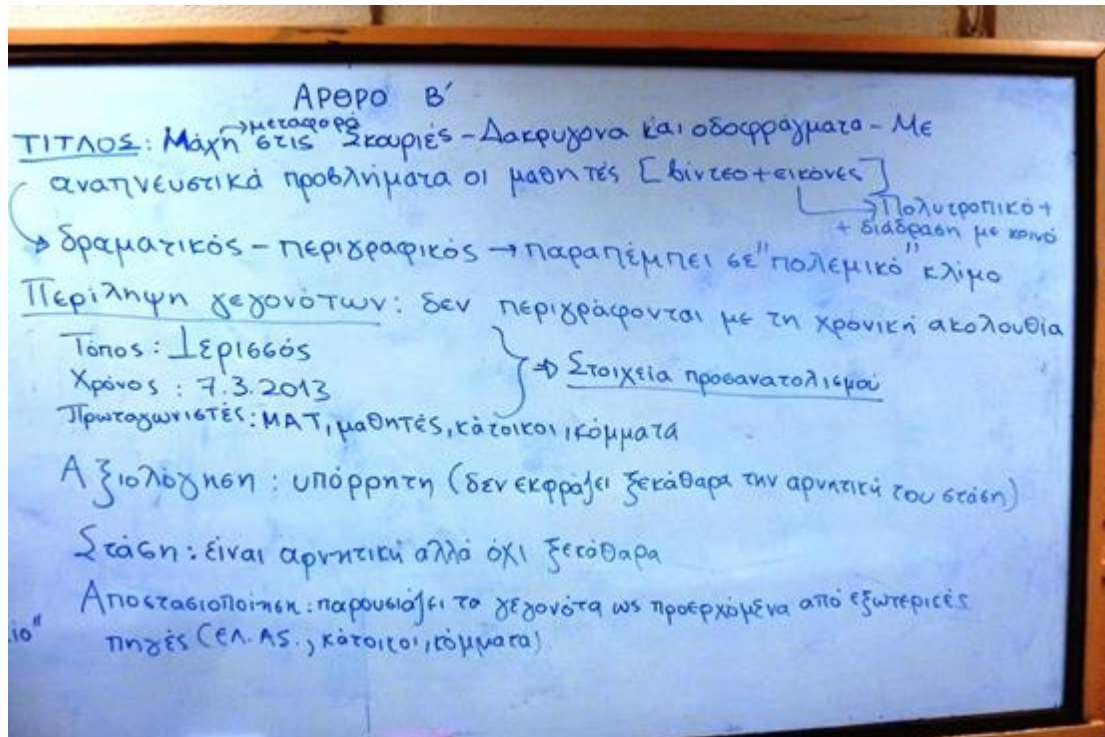 ΑΡΘΡΟ Β΄
→μεταφορά
ΤΙΤΛΟΣ: Μάχη στις Σκουριές - Δακρυγόνα και οδοφράγματα - Με
αναπνευστικά προβλήματα οι μαθητές [βίντεο+εικόνες]
→Πολυτροπικό+
+ διάδραση με κοινό
→ δραματικός - περιγραφικός → παραπέμπει σε "πολεμικό" κλίμα
Περίληψη γεγονότων: δεν περιγράφονται με τη χρονική ακολουθία
Τόπος: Ιερισσός
Χρόνος: 7.3.2013
→ Στοιχεία προσανατολισμού
Πρωταγωνιστές: ΜΑΤ, μαθητές, κάτοικοι, κόμματα
Αξιολόγηση: υπόρρητη (δεν εκφράζει ξεκάθαρα την αρνητική του στάση)
Στάση: είναι αρνητική αλλά όχι ξεκάθαρα
Αποστασιοποίηση: παρουσιάζει τα γεγονότα ως προερχόμενα από εξωτερικές
πηγές (ΕΛ.ΑΣ., κάτοικοι, κόμματα)